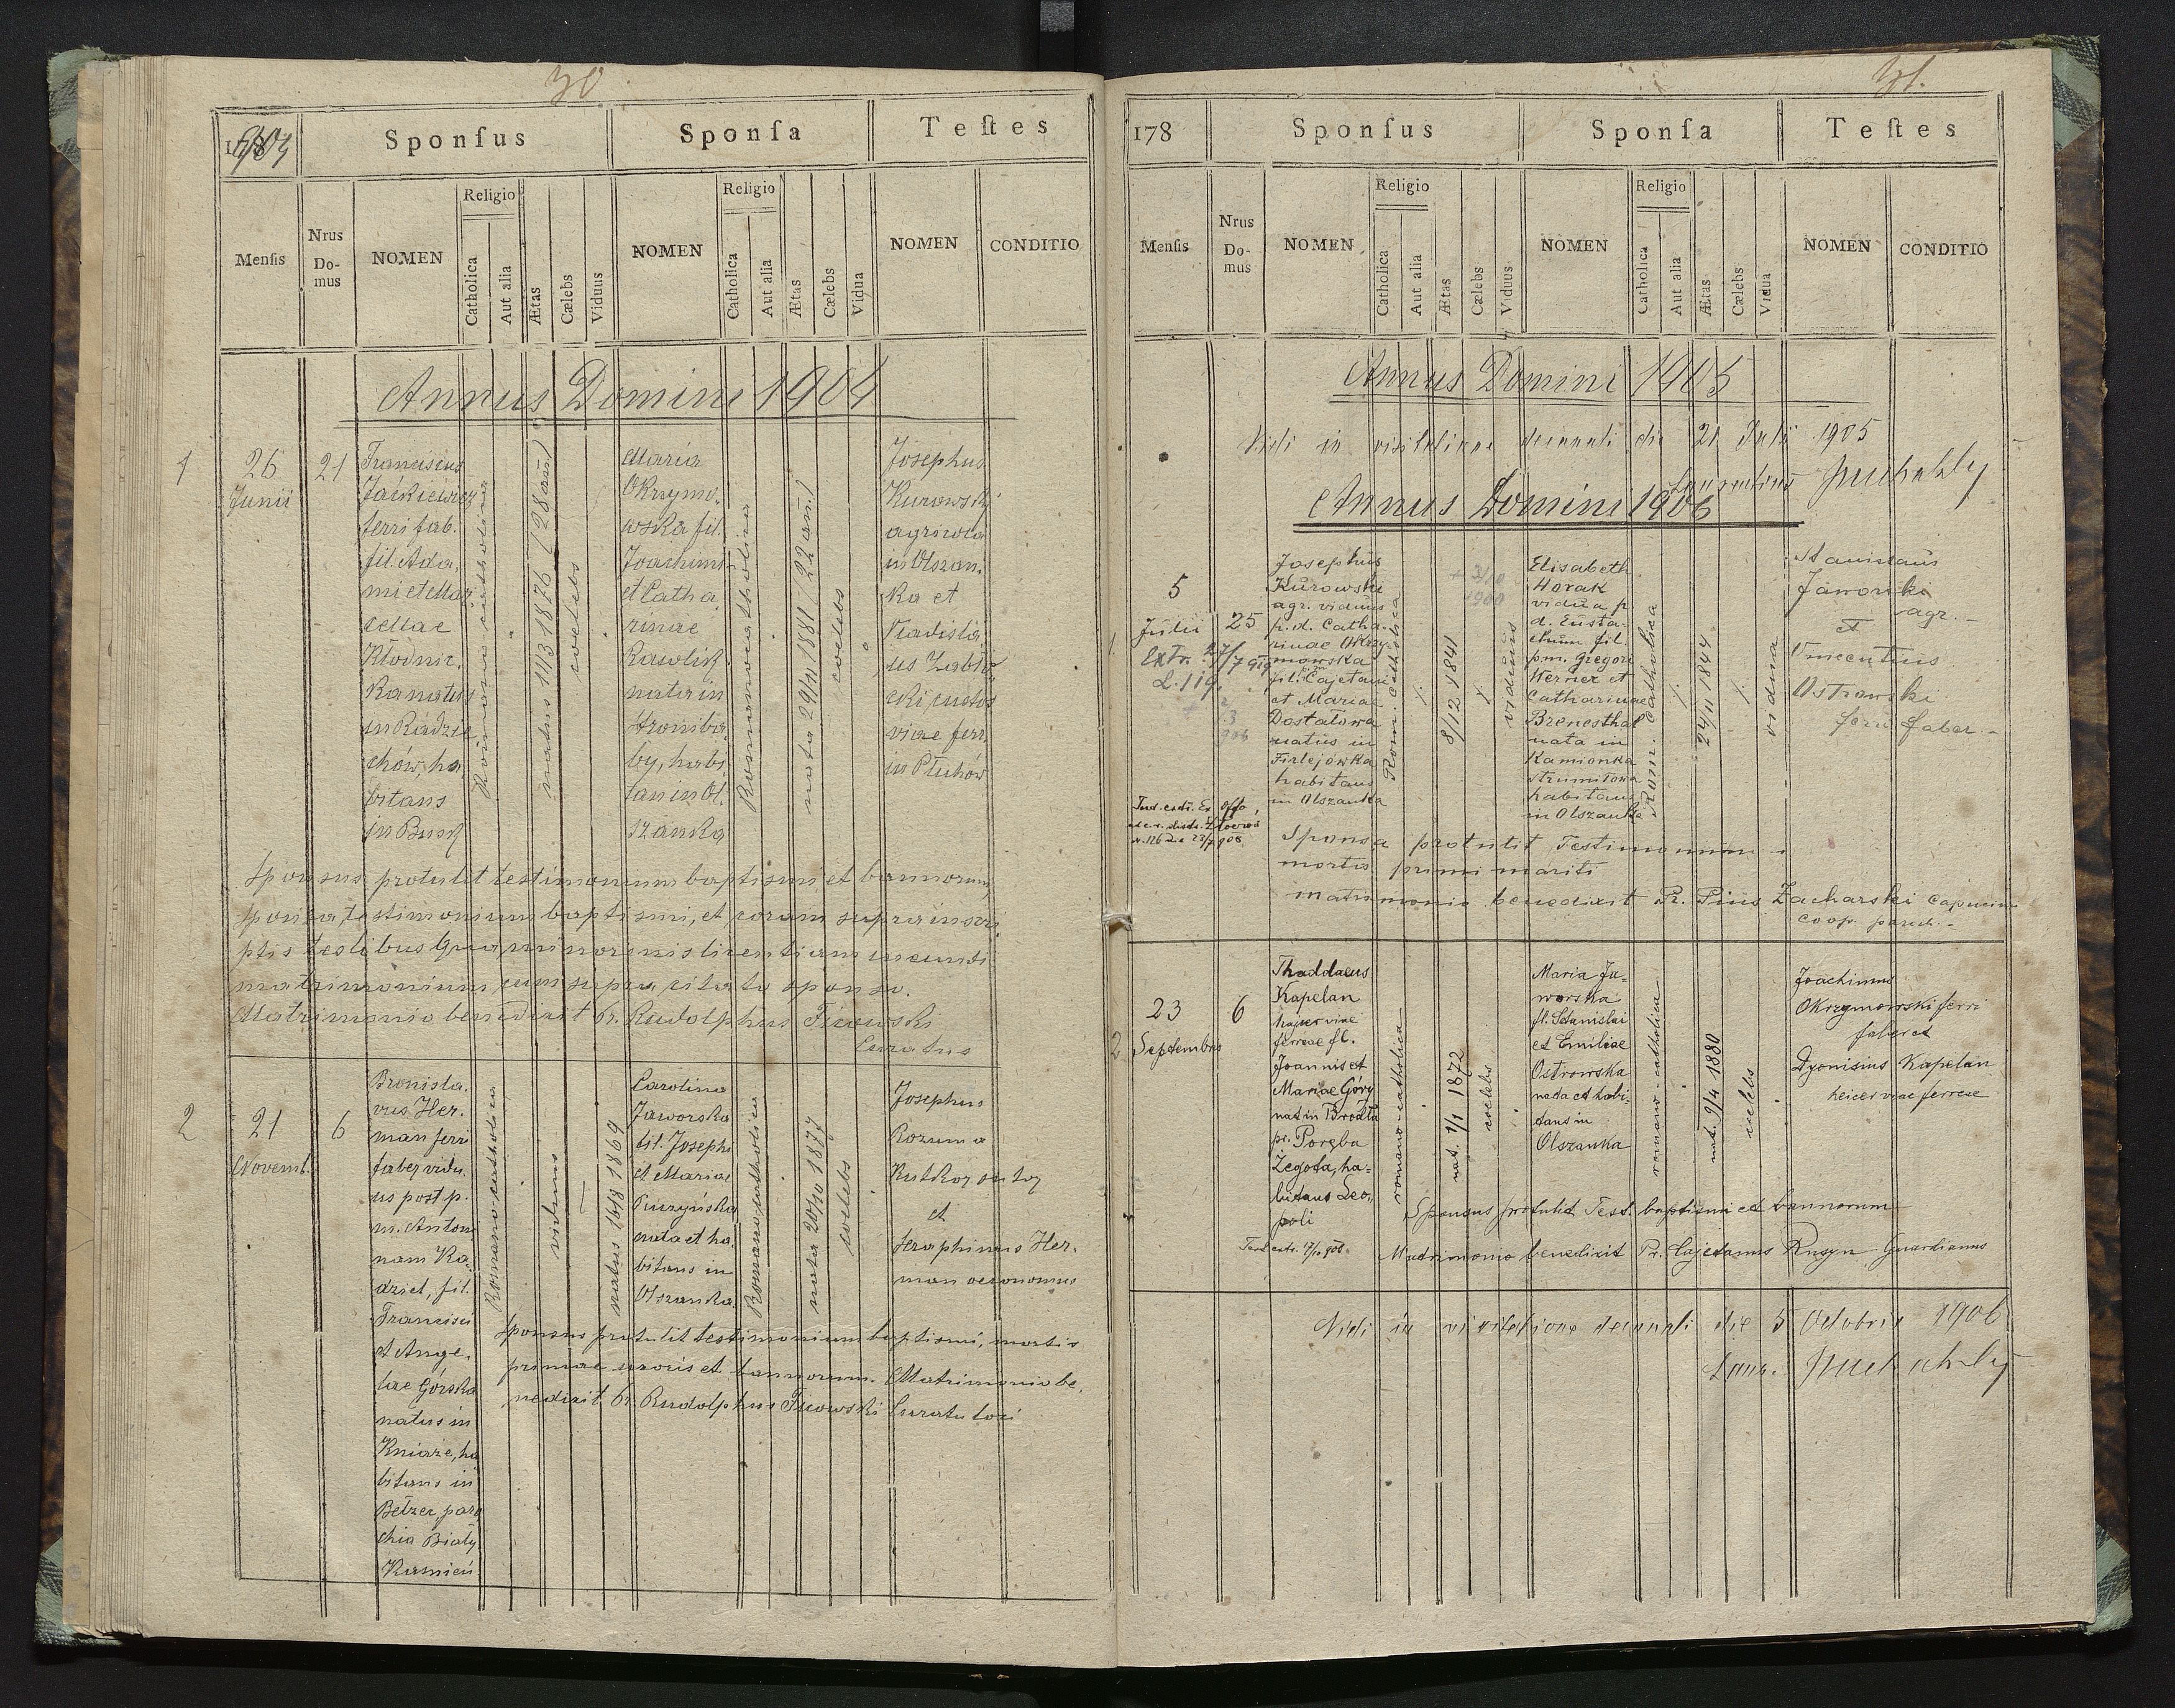 30
1904
Sponſus
Sponſa
Teſtes
Menſis
Nrus Domus
NOMEN
Religio
Catholica
Aut alia
Ætas
Cælebs
Viduus
NOMEN
Religio
Catholica
Aut alia
Ætas
Cælebs
Vidua
NOMEN
CONDITIO
Annus Domini 1904
1
26
Junii
21
Franciscus
Jackiewicz
ferri fab.
fil. Ada,
mi et Mar
cellae
Kłodnic,
ka natus
in Radzie
chów, ha
bitans
in Busk
Romano catholica
natus 11/3 1876 (28 an.)
coelebs
Maria
Okrzymo,
wska fil.
Joachimi
et Catha,
rinae
Kawlik
nata in
by, habi
tan in Ol,
szanka
Romano catholica
nata 29/11 1881 (22 an.)
coelebs
Josephus
Kurowski
agricola
in Olszan,
ka et
Vladisla
us Zabło,
cki custos
viae ferr,
in Płuchów
Sponsus protulit testimonium baptismi et bannorum,
sponsa testimonium baptismi, et coram suprainscri,
ptis testibus qua minorenis licentiam ineundi
matrimonium cum supra citato sponso.
Matrimonio benedixit Pr. Rudolphus Ficowski
Curatus
2
21
Novemb.
6
Bronisla,
vus Her,
man ferri
faber vidu,
us post p.
m. Anton
nam Ka,
dziel, fil.
Francisci
et Ange,
lae Górska
natus in
Kniaże, ha
bitans in
Bełzec paro
chia Biały
Kamień
Romano catholica
viduus
natus 16/8 1869
Carolina
Jaworska
fil. Josephi
et Mariae
nata et ha,
bitans in
Olszanka
Romano catholica
nata 20/10 1877
coelebs
Josephus
Rozum a
Rutkor sutor
et
Seraphinus Her,
man oeconomus
Sponsus protulit testimonium baptismi, mortis
primae uxoris et bannorum. Matrimonio be,
nedixit Pr. Rudolphus Ficowski Curatu loci
31.
178
Sponſus
Sponſa
Teſtes
Menſis
Nrus Domus
NOMEN
Religio
Catholica
Aut alia
Ætas
Cælebs
Viduus
NOMEN
Religio
Catholica
Aut alia
Ætas
Cælebs
Vidua
NOMEN
CONDITIO
Annus Domini 1905
Vidi in visitatione decanali die 21 Julii 1905
Laurentius
Annus Domini 1906
1
5
Julii
25
Extr. 27/7
L. 119.
Josephus
Kurowski
agr. viduus
p. d. Catha-
rinae Okrzy-
mowska
fil. Cajetani
et Mariae
Dostatowa
natus in
Firlejówka
habitans
in Olszanka
Rom. catholica
8/12 1841
viduus
Elisabeth
Horak
vidua p.
d. Eusta-
chium fil.
pm. Gregori
Werner et
Catharinae
Brenesthal
nata in
Kamionka
strumiłowa
habitans
in Olszanka
Rom. catholica
24/11 1844
vidua
Stanislaus
Jaworski
agr.-
et
Vincentius
Ostrowski
ferri faber.-
Sponsa protulit Testimonium
mortis primi mariti
matrimonio benedixit Pr. Pius Zacharski Capucinus
coop. paroch.-
2
23
Septembris
6
Thaddaeus
Kapelan
viae
ferreae fl.
Joannis et
Mariae Gory
nat. in Brodła
pr. Poręba
Żegota, ha=
bitans Leo,,
poli
romano-catholica
nat. 1/1 1872
coelebs
Maria Ja=
worska
fl. Stanislai
et Emiliae
Ostrowska
nata et habi-
tans in
Olszanka
romano-catholica
nat. 9/4 1880
coelebs
Joachimus
Okrzymowski ferri
faber et
Dyonisius Kapelan
heicer viae ferreae
Sponsus protulit Test. baptismi et bannorum
Matrimonio benedixit Pr. Cajetanus Rusyn Guardianus
Vidi in visitatione decanali die 5 Octobris 1906
Laur.